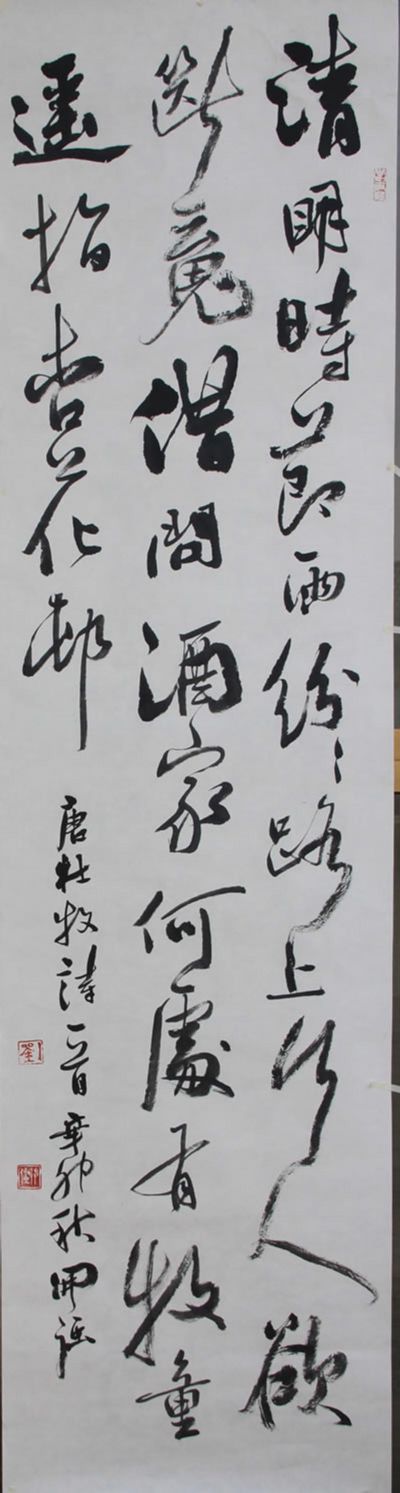 清明時節雨紛〻路上行人欲
斷魂借問酒家何處有牧童
遥指杏花邨
唐杜牧詩一首辛卯秋